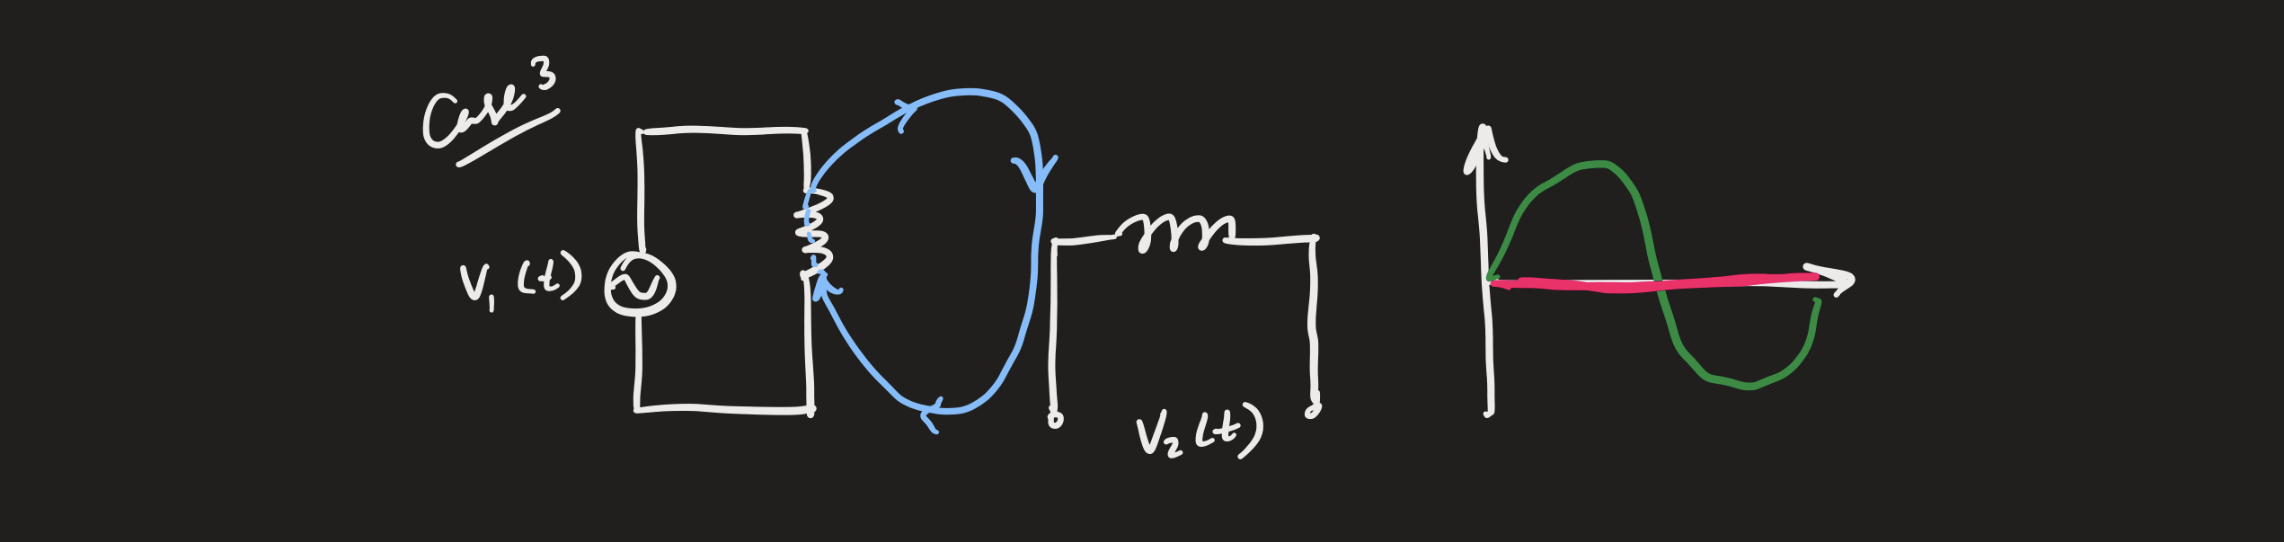 Case 3
V₁(t)
V₂(t)